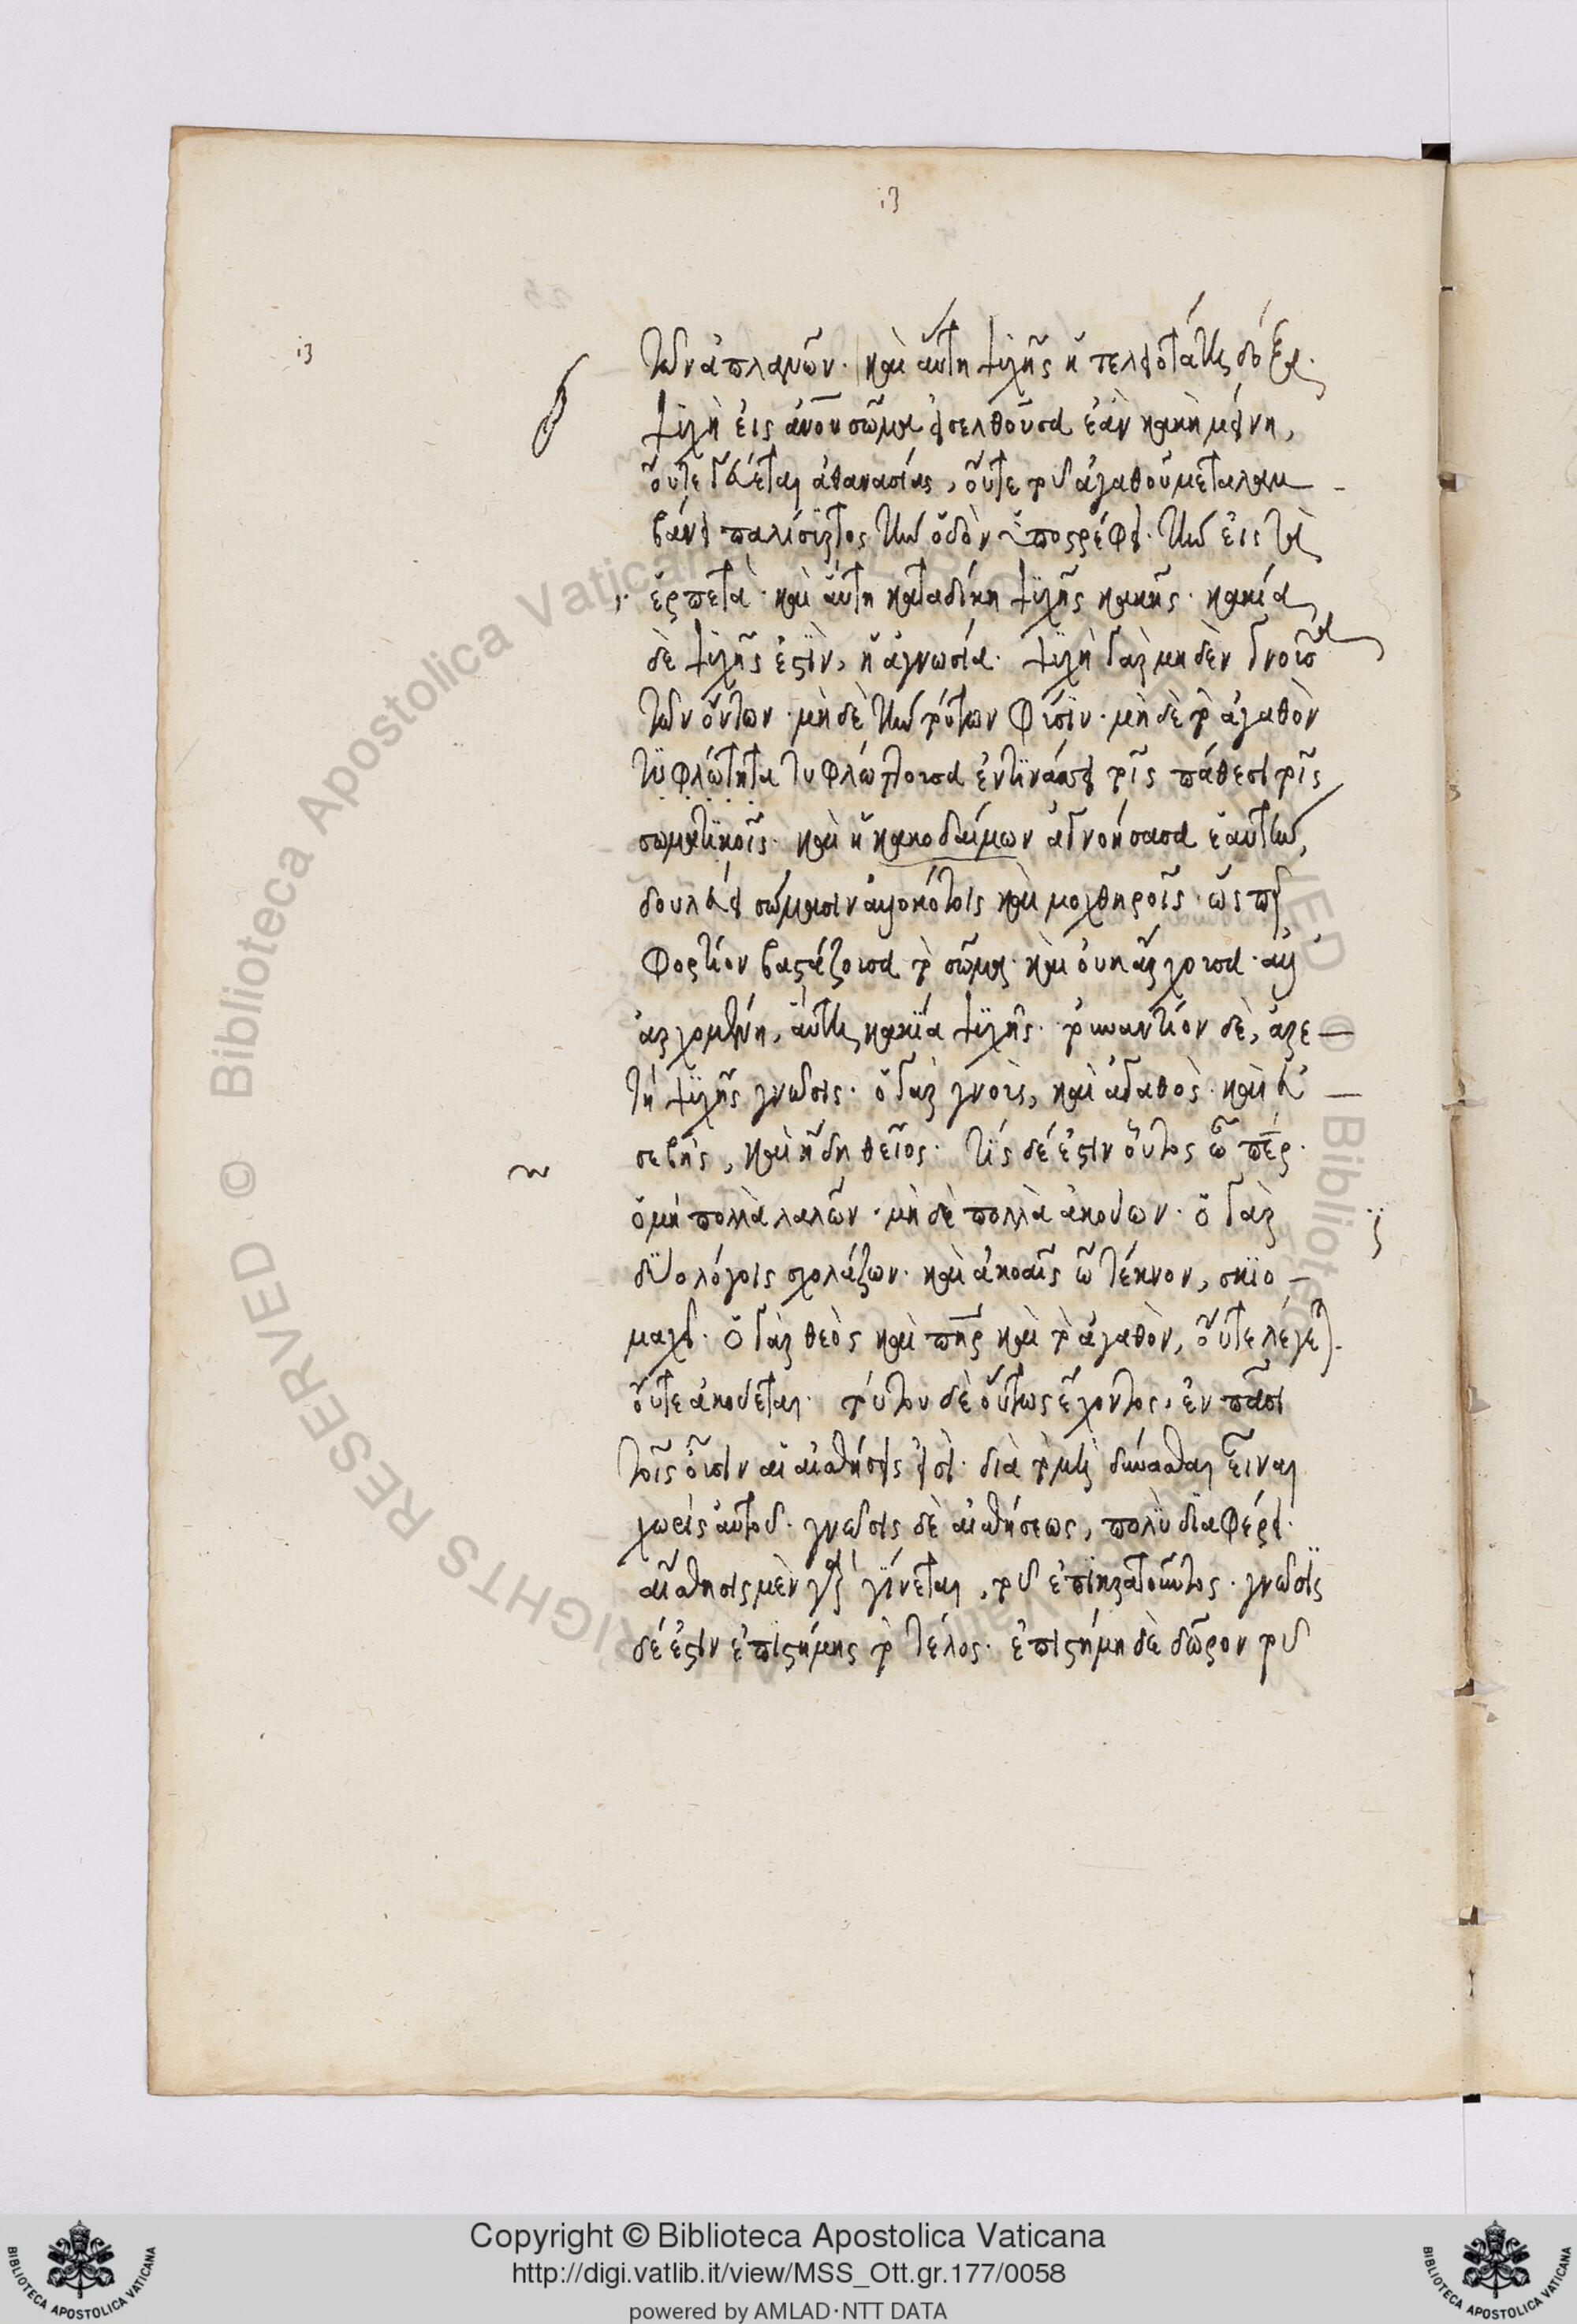 13
13
τῶν ἀπλανῶν. καὶ αὕτη ψυχῆς ἡ τελειοτάτη δόξα.
ψυχὴ εἰς ἀνου σῶμα εἰσελθοῦσα ἐὰν κακὴ μείνῃ,
οὔτε γεύεται ἀθανασίας, οὔτε τοῦ ἀγαθοῦ μεταλαμ-
βάνει παλίσυρτος τὴν ὁδὸν ὑποστρέφει. τὴν εἰς τὰ
ἑρπετὰ. καὶ αὕτη καταδίκη ψυχῆς κακῆς. κακία
δὲ ψυχῆς ἐστὶν, ἡ ἀγνωσία. ψυχὴ γὰρ μηδὲν γνοῦσα
τῶν ὄντων. μὴ δὲ τὴν τούτων φύσιν. μὴ δὲ τὸ ἀγαθὸν
τυφλώττητα τυφλώττουσα ἐντινάσσει τοῖς πάθεσι τοῖς
σωματικοῖς. καὶ ἡ κακοδαίμων ἀγνοήσασα ἑαυτὴν,
δουλεύει σώμασιν ἀλλοκότοις καὶ μοχθηροῖς. ὥσπερ
φορτίον βαστάζουσα τὸ σῶμα. καὶ οὐκ ἄρχουσα. ἀλλ'
ἀρχομένη, αὕτη κακία ψυχῆς. τοὐναντίον δὲ, ἀρε-
τὴ ψυχῆς γνῶσις. ὁ γὰρ γνοὺς, καὶ ἀγαθὸς. καὶ εὐ-
σεβὴς, καὶ ἤδη θεῖος. τίς δέ ἐστιν οὗτος ὦ περ.
ὁ μὴ πολλὰ λαλῶν. μὴ δὲ πολλὰ ἀκούων. ὁ γὰρ
δυο λόγοις σχολάζων. καὶ ἀκοαῖς ὦ τέκνον, σκιο-
μαχεῖ. ὁ γὰρ θεὸς καὶ πηρ καὶ τὸ ἀγαθὸν, οὔτε λέγεται.
οὔτε ἀκούεται. τούτου δὲ οὕτως ἔχοντος, ἐν πᾶσι
τοῖς οὖσιν αἱ αἰσθήσεις εἰσὶ. διὰ τὸ μὴ δύνασθαι εἶναι
χωρὶς αὐτοῦ. γνῶσις δὲ αἰσθήσεως, πολὺ διαφέρει.
αἴσθησις μὲν γὰρ γίνεται, τοῦ ἐπικρατοῦντος. γνῶσις
δέ ἐστιν ἐπιστήμης τὸ τέλος. ἐπιστήμη δὲ δῶρον τοῦ
Copyright © Biblioteca Apostolica Vaticana
http://digi.vatlib.it/view/MSS_Ott.gr.177/0058
powered by AMLAD·NTT DATA